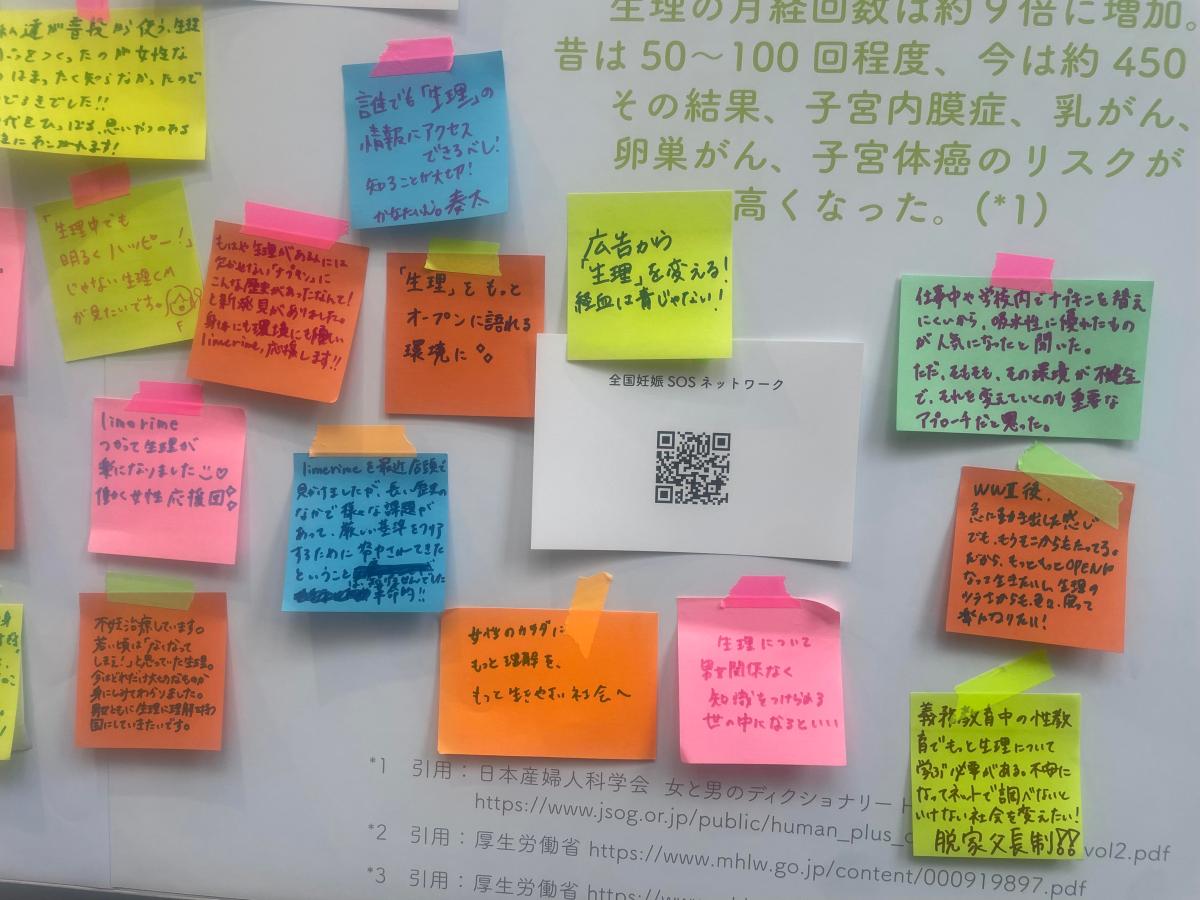 生理の月経回数は約9倍に増加。
昔は50〜100回程度、今は約450
その結果、子宮内膜症、乳がん、
卵巣がん、子宮体癌のリスクが
高くなった。(*1)
達が普段から使う、生理
をつくったのが女性な
はまったく知らなかったので
できでした!!
誰でも「生理」の
情報にアクセス
できるべし!
知ることが大切!
「生理中でも
明るくハッピー!」
じゃない生理CM
が見たいです。
F
もはや生理がある人には
欠かせない「ナプキン」に
こんな歴史があったなんて!
と新発見がありました。
身体にも環境にも優しい
limerime,応援します!!
「生理」をもっと
オープンに語れる
環境に。
広告から
「生理」を変える!
経血は青じゃない!
全国妊娠SOSネットワーク
仕事中や学校内でナプキンを替え
にくいから、吸水性に優れたもの
が人気になったと聞いた。
ただ、そもそも、その環境が不健全
で、それを変えていくのも重要な
アプローチだと思った。
limerime
つかって生理が
楽になりました♡
働く女性応援団
limerimeを最近店頭で
見かけましたが、長い歴史の
なかで様々な課題が
あって、厳しい基準をクリア
するために
ということ
革命的!!
WWⅡ後、
急に動き出した感じ
でも、もうそこから
だから、もっともっとOPENに
なって生きたいし、生理の
ツラさからも、
楽になりたい!
不妊治療しています。
若い頃は「なくなって
しまえ!」と思っていた生理。
今はどれだけ大切なものか
身にしみてわかりました。
ともに生理に理解を
国にしていきたいです。
女性のカラダに
もっと理解を、
もって生きやすい社会へ
生理について
男女関係なく
知識をつけられる
世の中になるといい
義務教育中の性教
育でもっと生理について
学ぶ必要がある。不安に
なってネットで調べないと
いけない社会を変えたい!
脱家父長制!!
*1 引用:日本産婦人科学会 女と男のディクショナリー
https://www.jsog.or.jp/public/human_plus_
vol2.pdf
*2 引用:厚生労働省 https://www.mhlw.go.jp/content/000919897.pdf
*3 引用:厚生労働省